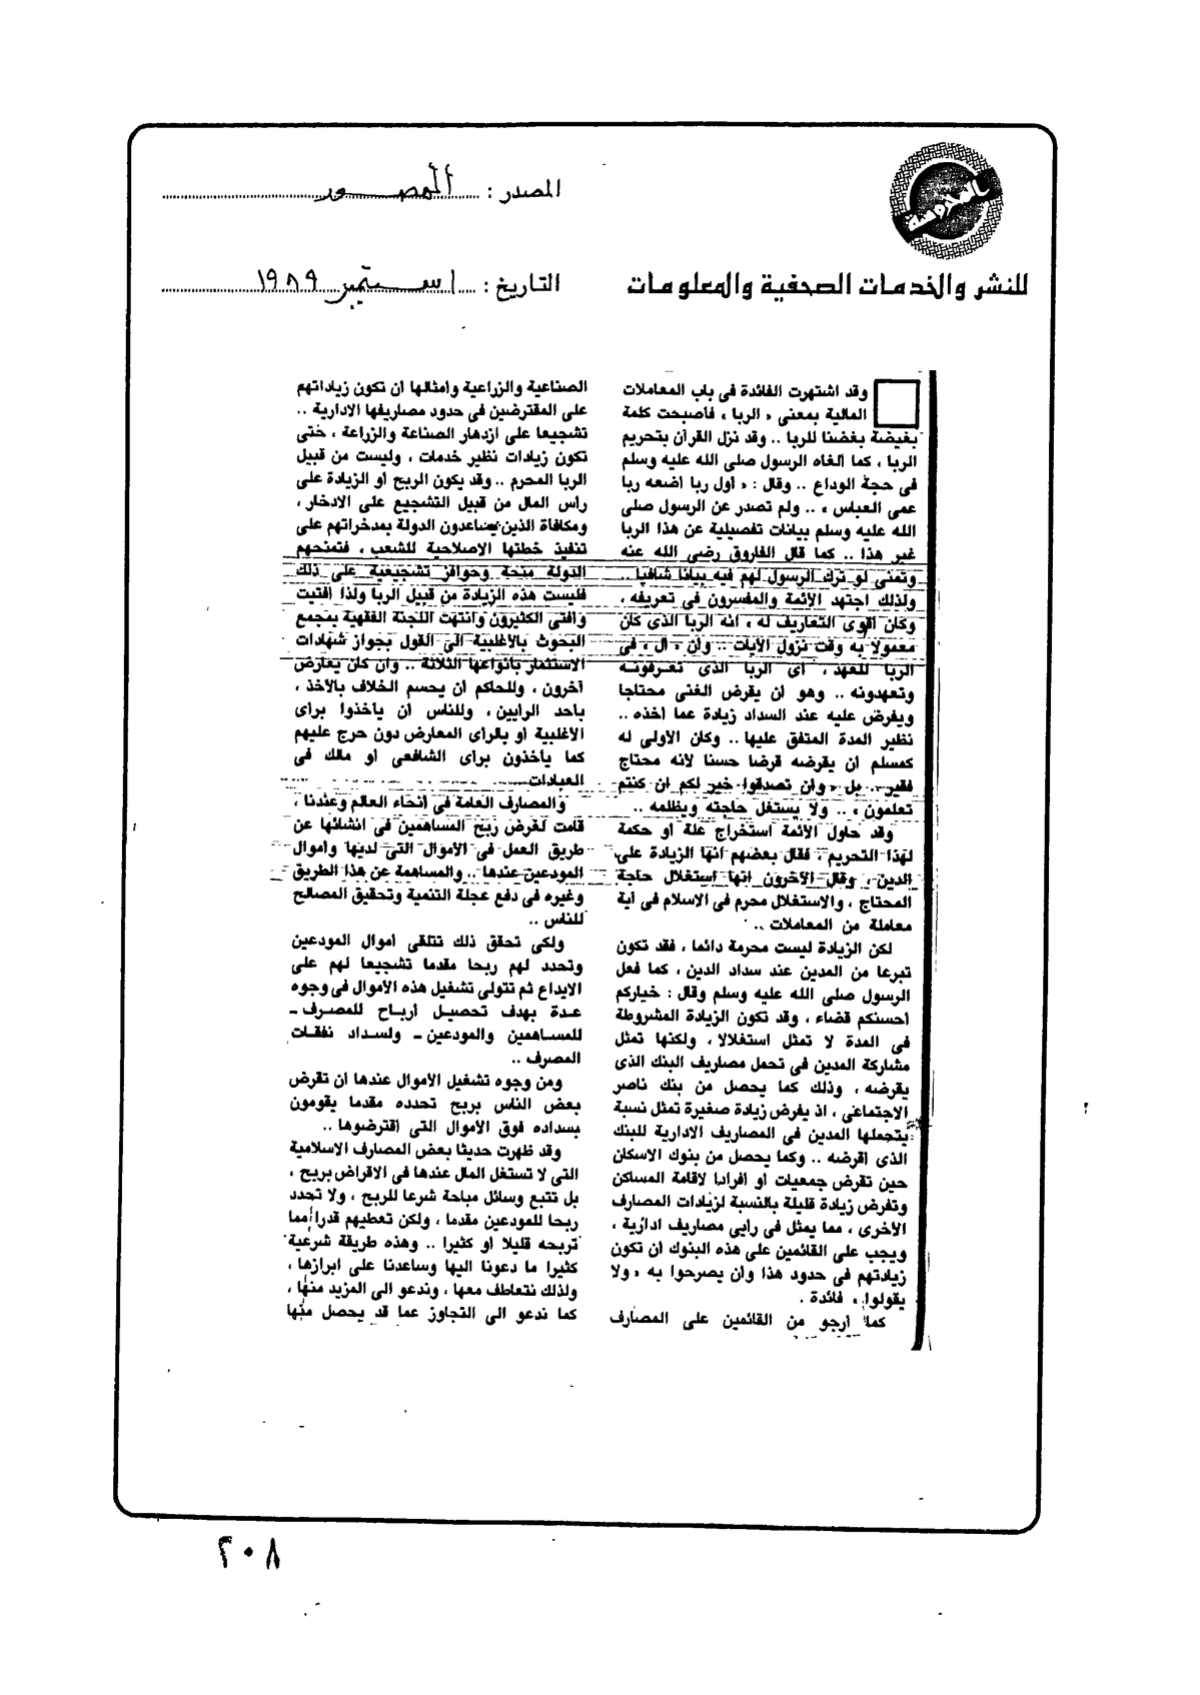 المصدر : المصور
للنشر والخدمات الصحفية والمعلومات
التاريخ : ١ سبتمبر ١٩٨٩
وقد اشتهرت الفائدة فى باب المعاملات
المالية بمعنى « الربا » فأصبحت كلمة
بغيضة بغضنا للربا .. وقد نزل القرآن بتحريم
الربا ، كما ألغاه الرسول صلى الله عليه وسلم
فى حجة الوداع .. وقال : « أول ربا أضعه ربا
عمى العباس » .. ولم تصدر عن الرسول صلى
الله عليه وسلم بيانات تفصيلية عن هذا الربا
غير هذا .. كما قال الفاروق رضى الله عنه
وتمنى لو ترك الرسول لهم فيه بيانا شافيا ..
ولذلك اجتهد الأئمة والمفسرون فى تعريفه ،
وكان أقوى التعاريف له ، انه الربا الذى كان
معمولا به وقت نزول الآيات .. وان « ال » فى
الربا للعهد ، أى الربا الذى تعرفونه
وتعهدونه .. وهو ان يقرض الغنى محتاجا
ويفرض عليه عند السداد زيادة عما أخذه ..
نظير المدة المتفق عليها .. وكان الأولى له
كمسلم ان يقرضه قرضا حسنا لانه محتاج
فقير .. بل « وان تصدقوا خير لكم ان كنتم
تعلمون » .. ولا يستغل حاجته ويظلمه ..
وقد حاول الأئمة استخراج علة أو حكمة
لهذا التحريم ، فقال بعضهم انها الزيادة على
الدين ، وقال الآخرون انها استغلال حاجة
المحتاج ، والاستغلال محرم فى الاسلام فى أية
معاملة من المعاملات ..
لكن الزيادة ليست محرمة دائما ، فقد تكون
تبرعا من المدين عند سداد الدين ، كما فعل
الرسول صلى الله عليه وسلم وقال : خياركم
أحسنكم قضاء ، وقد تكون الزيادة المشروطة
فى المدة لا تمثل استغلالا ، ولكنها تمثل
مشاركة المدين فى تحمل مصاريف البنك الذى
يقرضه ، وذلك كما يحصل من بنك ناصر
الاجتماعى ، اذ يفرض زيادة صغيرة تمثل نسبة
يتحملها المدين فى المصاريف الادارية للبنك
الذى أقرضه .. وكما يحصل من بنوك الاسكان
حين تقرض جمعيات أو أفرادا لاقامة المساكن
وتفرض زيادة قليلة بالنسبة لزيادات المصارف
الأخرى ، مما يمثل فى رأيى مصاريف ادارية ،
ويجب على القائمين على هذه البنوك ان تكون
زيادتهم فى حدود هذا وان يصرحوا به « ولا
يقولوا » فائدة .
كما أرجو من القائمين على المصارف
الصناعية والزراعية وأمثالها ان تكون زياداتهم
على المقترضين فى حدود مصاريفها الادارية ..
تشجيعا على ازدهار الصناعة والزراعة ، حتى
تكون زيادات نظير خدمات ، وليست من قبيل
الربا المحرم .. وقد يكون الربح أو الزيادة على
رأس المال من قبيل التشجيع على الادخار ،
ومكافأة الذين يساعدون الدولة بمدخراتهم على
تنفيذ خطتها الاصلاحية للشعب ، فتمنحهم
الدولة منحة وحوافز تشجيعية على ذلك
فليست هذه الزيادة من قبيل الربا ولذا أفتيت
وأفتى الكثيرون وانتهت اللجنة الفقهية بمجمع
البحوث بالأغلبية الى القول بجواز شهادات
الاستثمار بأنواعها الثلاثة .. وان كان يعارض
آخرون ، وللحاكم أن يحسم الخلاف بالأخذ ،
بأحد الرأيين ، وللناس ان يأخذوا برأى
الأغلبية أو بالرأى المعارض دون حرج عليهم
كما يأخذون برأى الشافعى أو مالك فى
العبادات
والمصارف العامة فى أنحاء العالم وعندنا ،
قامت لغرض ربح المساهمين فى انشائها عن
طريق العمل فى الأموال التى لديها وأموال
المودعين عندها .. والمساهمة عن هذا الطريق
وغيره فى دفع عجلة التنمية وتحقيق المصالح
للناس ..
ولكى تحقق ذلك تتلقى أموال المودعين
وتحدد لهم ربحا مقدما تشجيعا لهم على
الايداع ثم تتولى تشغيل هذه الأموال فى وجوه
عدة بهدف تحصيل أرباح للمصرف ـ
للمساهمين والمودعين ـ ولسداد نفقات
المصرف ..
ومن وجوه تشغيل الأموال عندها ان تقرض
بعض الناس بربح تحدده مقدما يقومون
بسداده فوق الأموال التى اقترضوها ..
وقد ظهرت حديثا بعض المصارف الاسلامية
التى لا تستغل المال عندها فى الاقراض بربح ،
بل تتبع وسائل مباحة شرعا للربح ، ولا تحدد
ربحا للمودعين مقدما ، ولكن تعطيهم قدرا مما
تربحه قليلا أو كثيرا .. وهذه طريقة شرعية
كثيرا ما دعونا اليها وساعدنا على ابرازها ،
ولذلك نتعاطف معها ، وندعو الى المزيد منها ،
كما ندعو الى التجاوز عما قد يحصل منها
٢٠٨